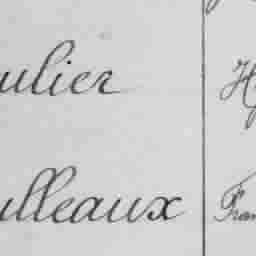 ulier H
ulleaux Fran